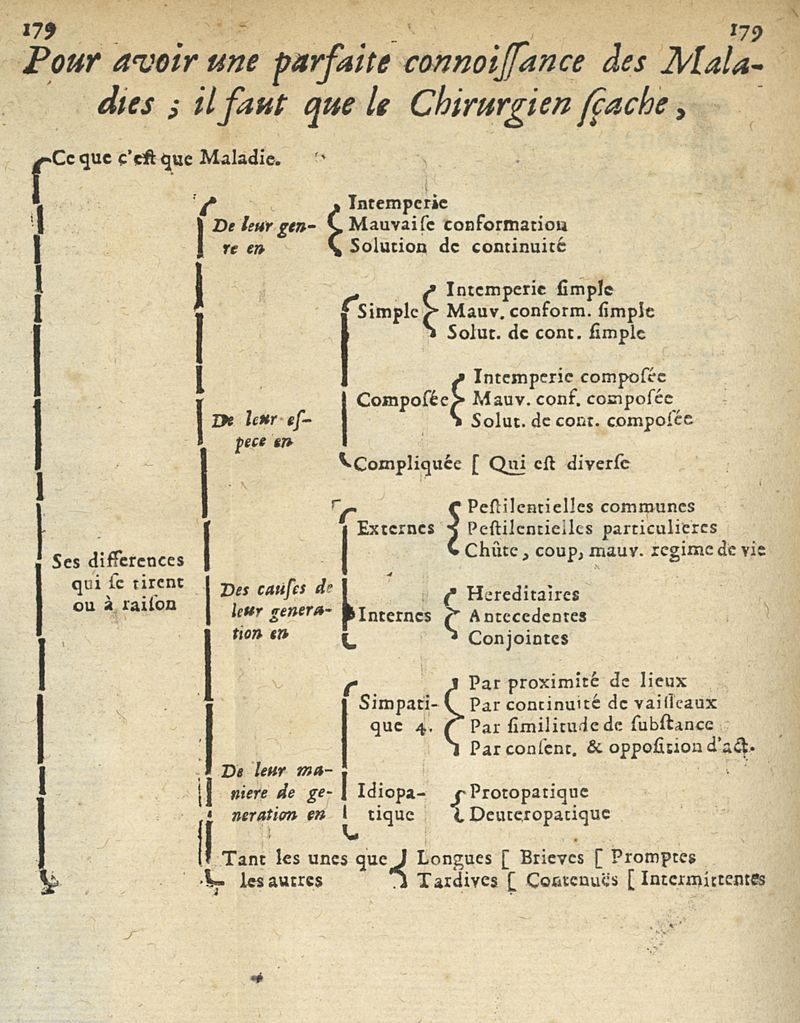 179 179
Pour avoir une parfaite connoiſſance des Mala-
dies ; il faut que le Chirurgien ſçache,
Ce que c'eſt que Maladie.
Intemperie
De leur gen- Mauvaiſe conformation
re en Solution de continuité
Intemperie ſimple
Simple Mauv. conform. ſimple
Solut. de cont. ſimple
Intemperie compoſée
Compoſée Mauv. conf. compoſée
De leur eſ- Solut. de cont. compoſée
pece en
Compliquée [ Qui eſt diverſe
Peſtilentielles communes
Externes Peſtilentielles particulieres
Chûte, coup, mauv. regime de vie
Ses differences
qui ſe tirent
ou à raiſon
Des cauſes de Hereditaires
leur genera- Internes Antecedentes
tion en Conjointes
Par proximité de lieux
Simpati- Par continuité de vaiſſeaux
que 4. Par ſimilitude de ſubſtance
Par conſent. & oppoſition d'act.
De leur ma-
niere de ge- Idiopa- Protopatique
neration en tique Deuteropatique
Tant les unes que Longues [ Brieves [ Promptes
les autres Tardives [ Contenuës [ Intermittentes